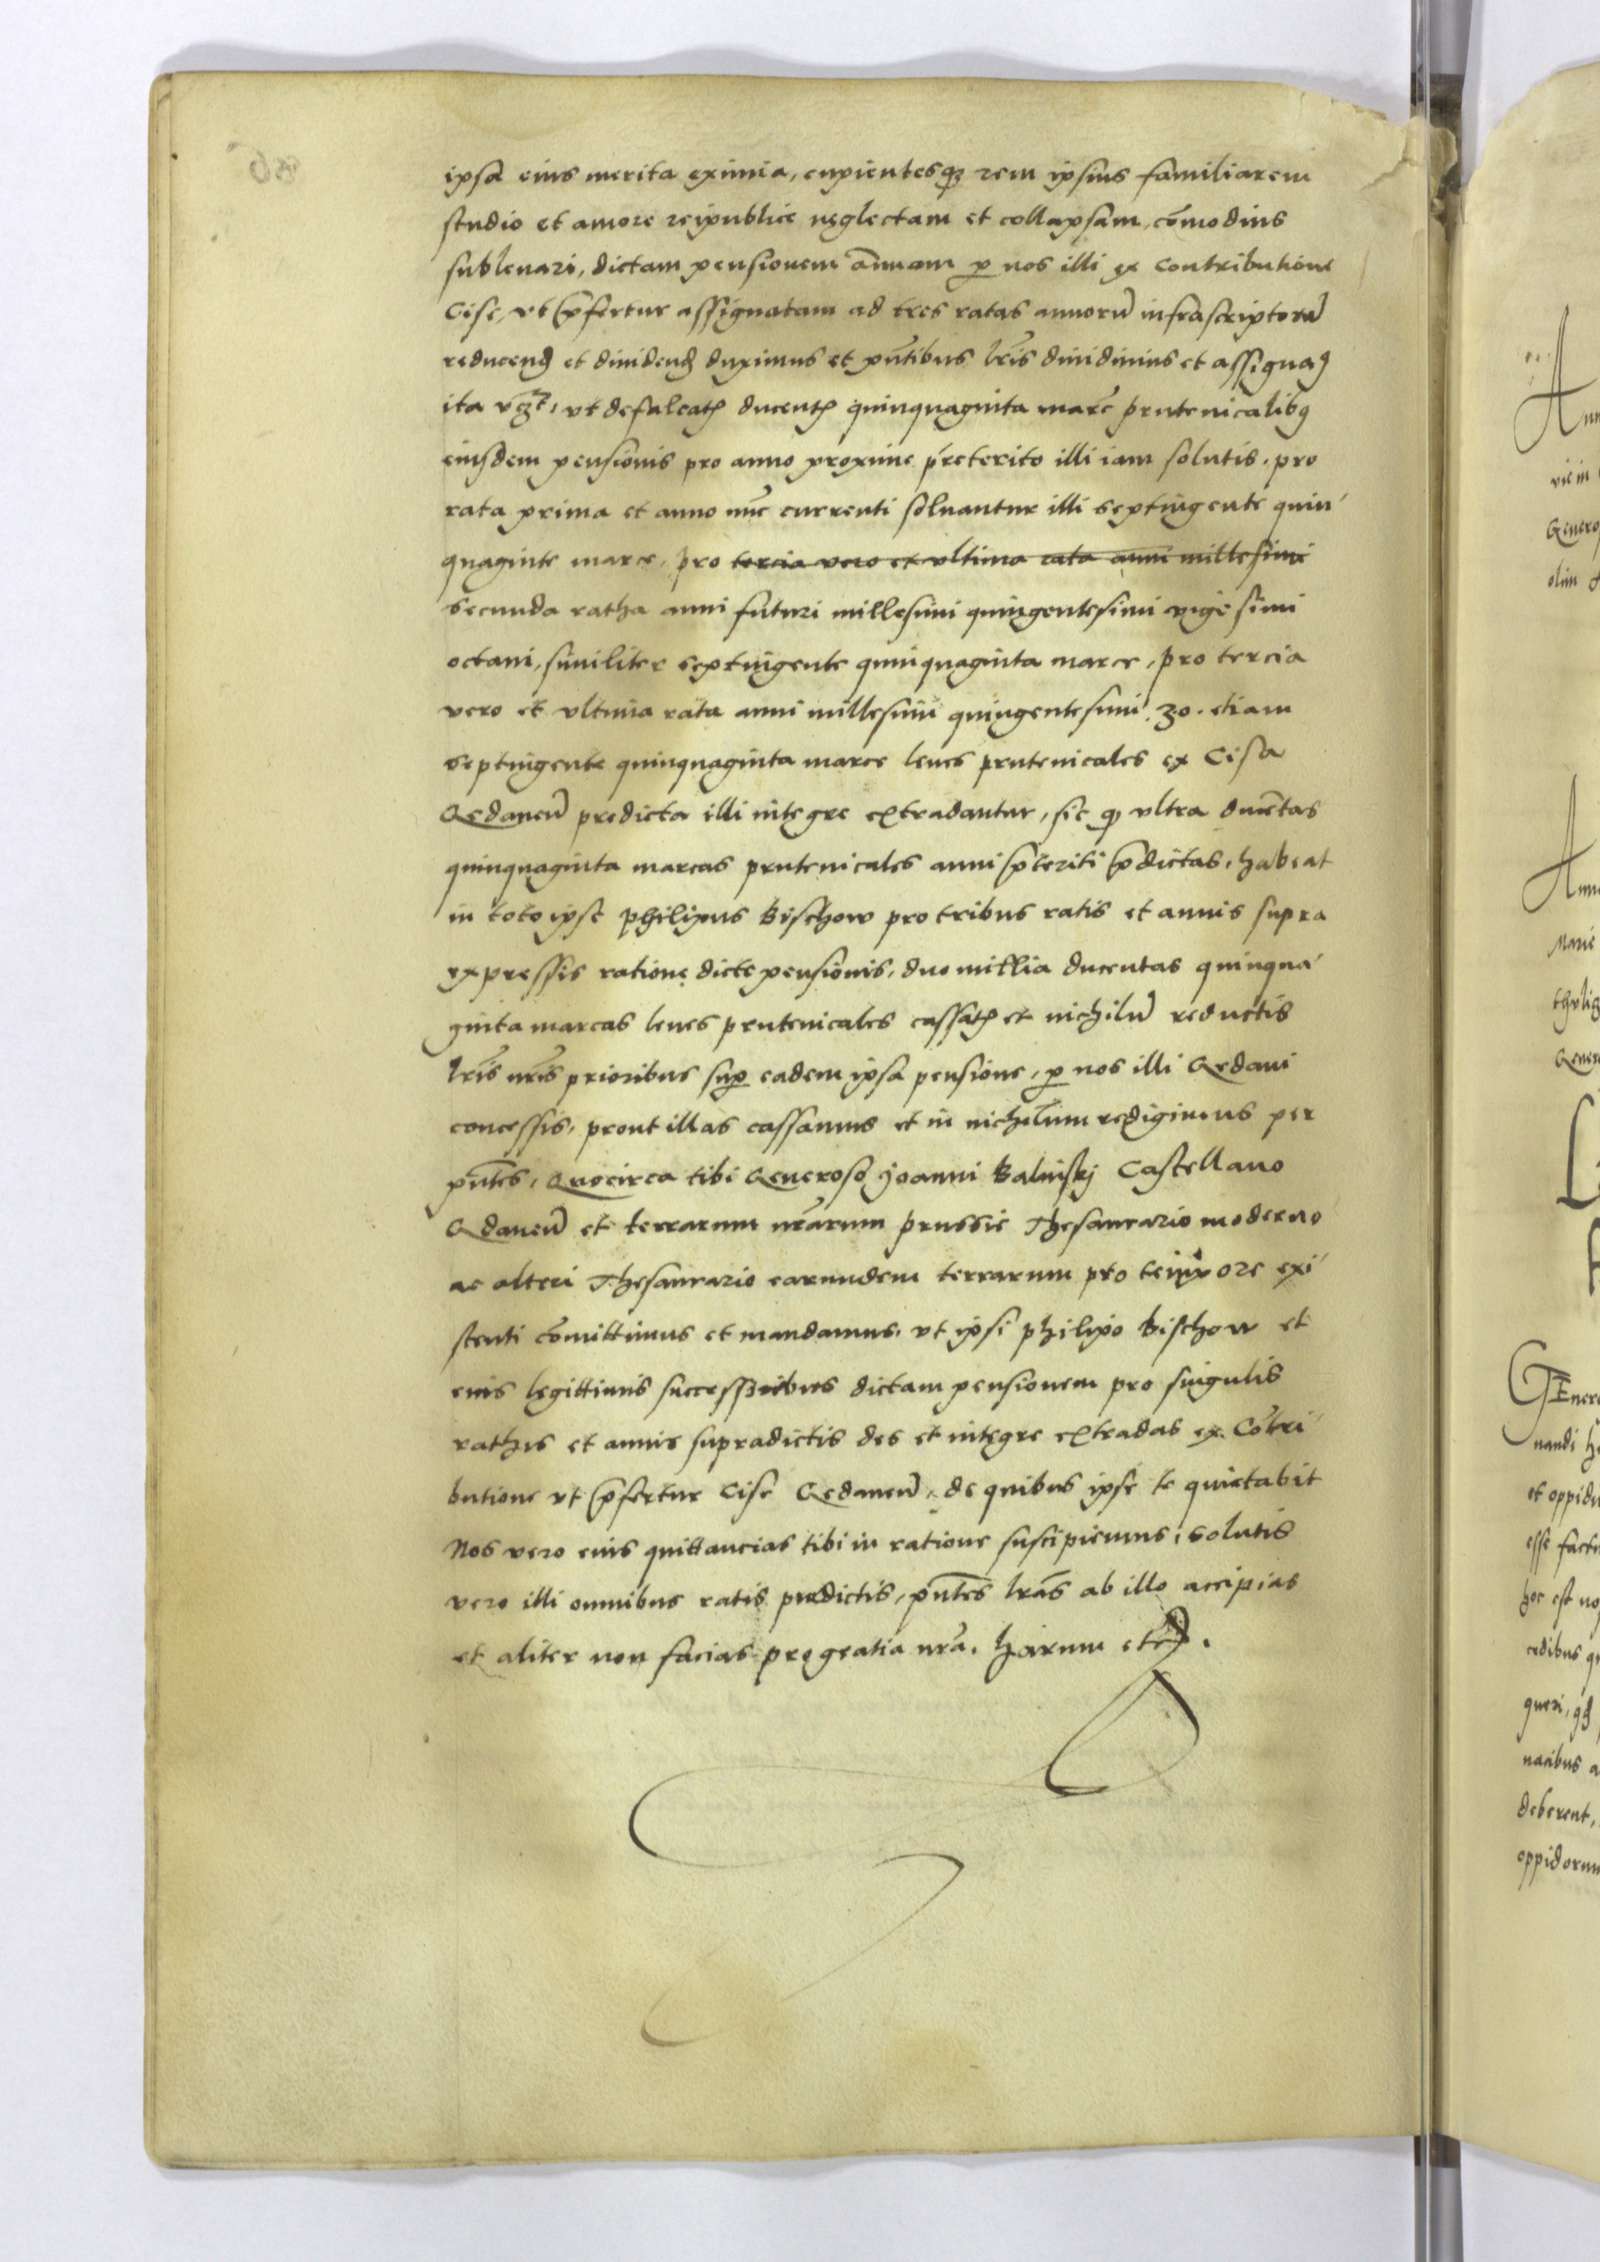 ipsa eius merita eximia, cupientesq₃ rem ipsius familiarem
studio et amore reipublice neglectam et collapsam, com̄odius
subleuari, dictam pensionem an̄uam ꝑ nos illi ex contributione
Cise, vt p̄fertur assignatam ad tres ratas annorū infrascriptorū
reducend et diuidend duximus et pn̄tibus lr̄is diuidimus et assignaꝫ
ita vꝫt, vt defalcatꝭ ducentꝭ quinquaginta marc̄ prutenicalibꝫ
eiusdem pensionis pro anno proxime preterito illi iam solutis, pro
rata prima et anno nūc currenti soluantur illi septingente quin
quaginte marce, pro tercia vero et vltima rata anni millesimi
secunda ratha anni futuri millesimi quingentesimi vigesimi
octaui, similiter septuigente quinquaginta marce, pro tercia
vero et vltima rata anni millesimi quingentesimi 30. etiam
septuigente quinquaginta marce leues prutenicales ex Cisa
Gedaneñ predicta illi integre extradantur, sic ꝙ vltra ducētas
quinquaginta marcas prutenicales anni p̄teriti p̄dictas, habeat
in toto ipse philipus Bischow pro tribus ratis et annis supra
expressis ratione dicte pensionis, duo millia ducentas quinqua
ginta marcas leues prutenicales cassatꝭ et nichilū reductis
lr̄is nr̄is prioribus suꝑ eadem ipsa pensione, ꝑ nos illi Gedani
concessis, prout illas cassamus et in nichilum redigimus per
pn̄tes, Quocirca tibi Generoso Joanni Balinskj Castellano
Gdaneñ et terrarum nr̄arum prussie Thesaurario moderno
ac alteri Thesaurario earundem terrarum pro tempore exi
stenti com̄ittimus et mandamus, vt ipsi philipo Bischow et
eius legittimis successoribus dictam pensionem pro singulis
rathis et annis supradictis des et integre extradas ex Cōtri
butione vt p̄fertur Cise Gedaneñ, de quibus ipse te quietabit
Nos vero eius quittancias tibi in ratione suscipiemus, solutis
vero illi omnibus ratis predictis, pn̄tes lr̄as ab illo accipias
et aliter non facias pro gratia nr̄a. harum etc.